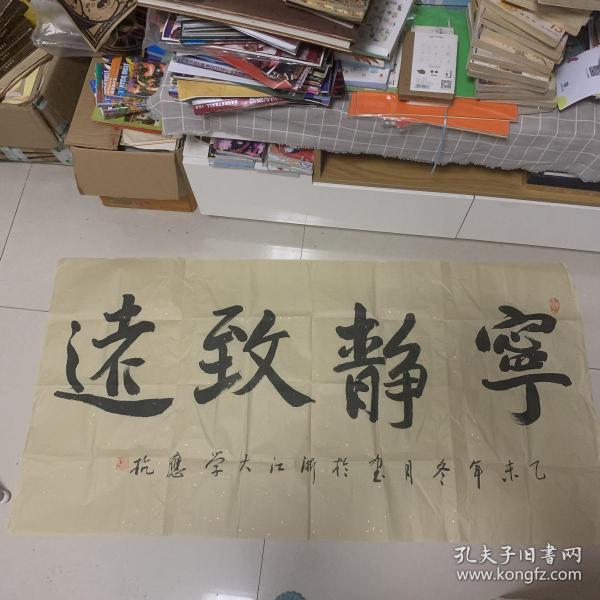 寧靜致遠
乙未年冬月書於浙江大学應杭
孔夫子旧书网
www.kongfz.com